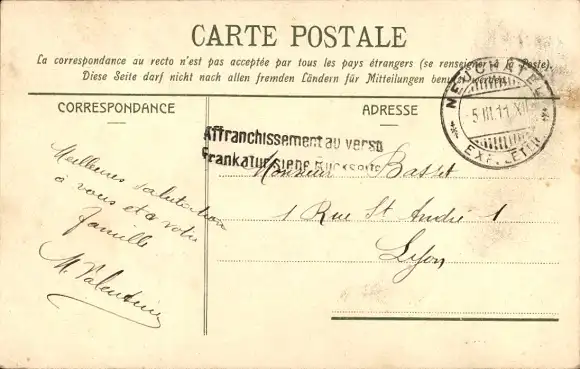 CARTE POSTALE
La correspondance au recto n'est pas acceptée par tous les pays étrangers (se renseigner à la Poste).
Diese Seite darf nicht nach allen fremden Ländern für Mitteilungen benutzt werden.
NEUCHATEL
5 III 11 XII
EXP. LETTR.
CORRESPONDANCE
ADRESSE
Affranchissement au verso
Frankatur siehe Rückseite
Meilleures salutations
à vous et à votre
famille
M. Valentin
Monsieur Basset
1 Rue St André 1
Lyon